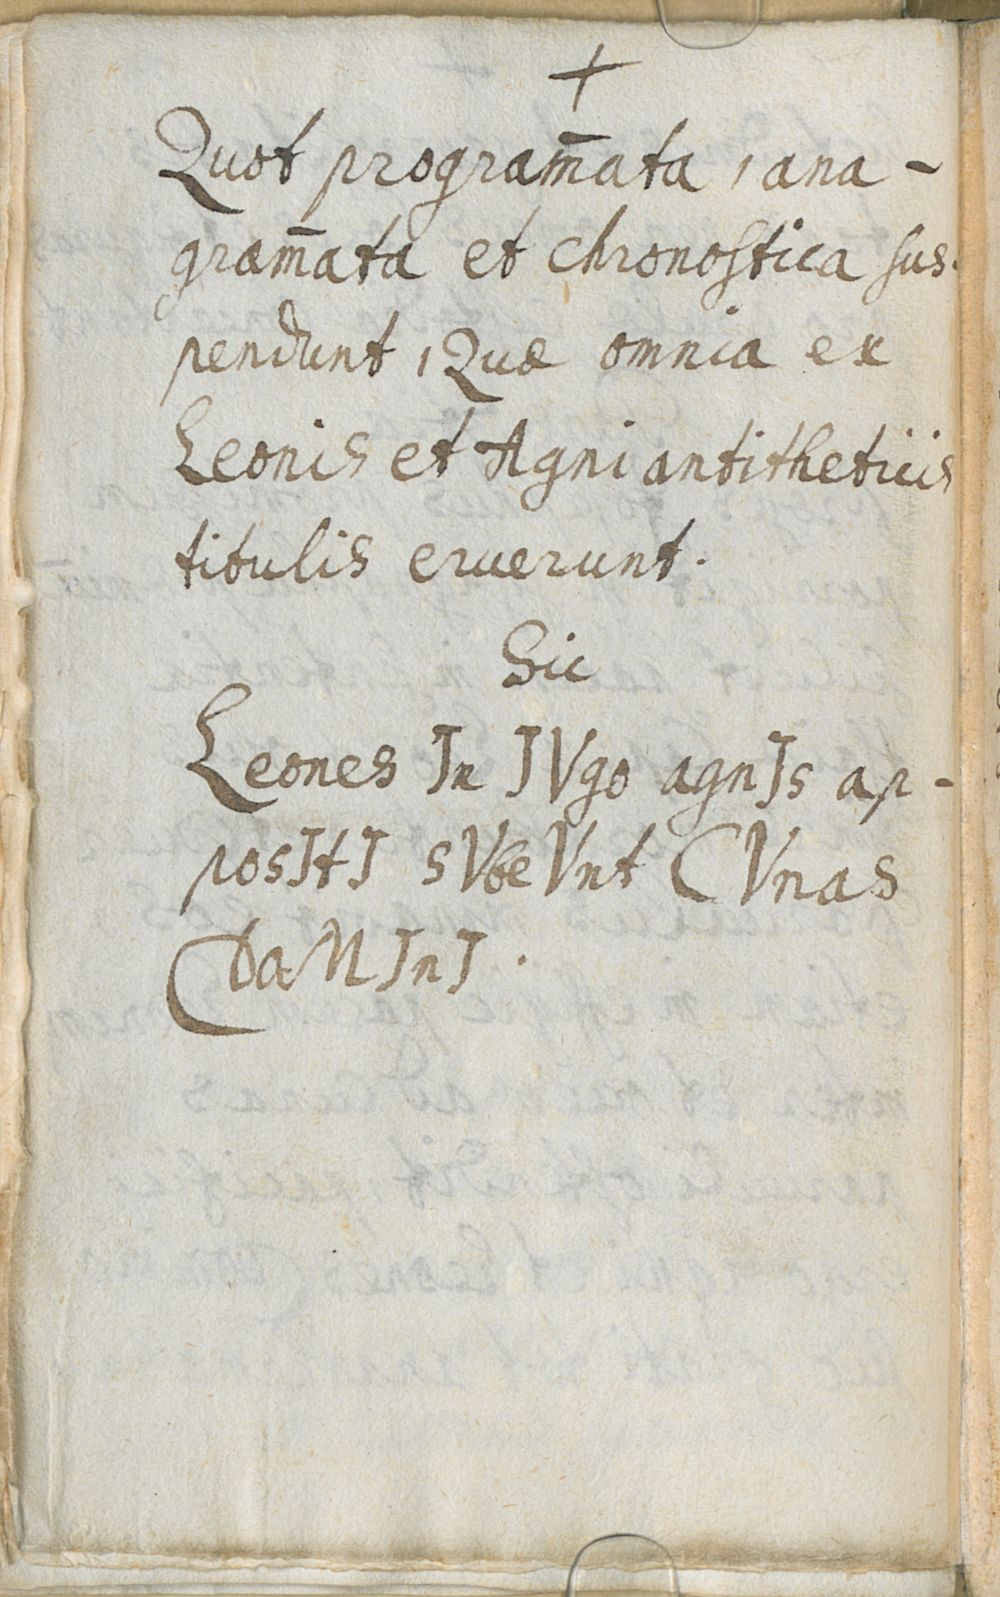 +
Quot programm̄ata, ana-
gram̄ata et chronostica sus-
pendunt, Quæ omnia ex
Leonis et Agni antitheticis
titulis eruerunt.
Sic
Leones In IVgo agnIs ap-
posItI sVbeVnt CVnas
DaMInI.